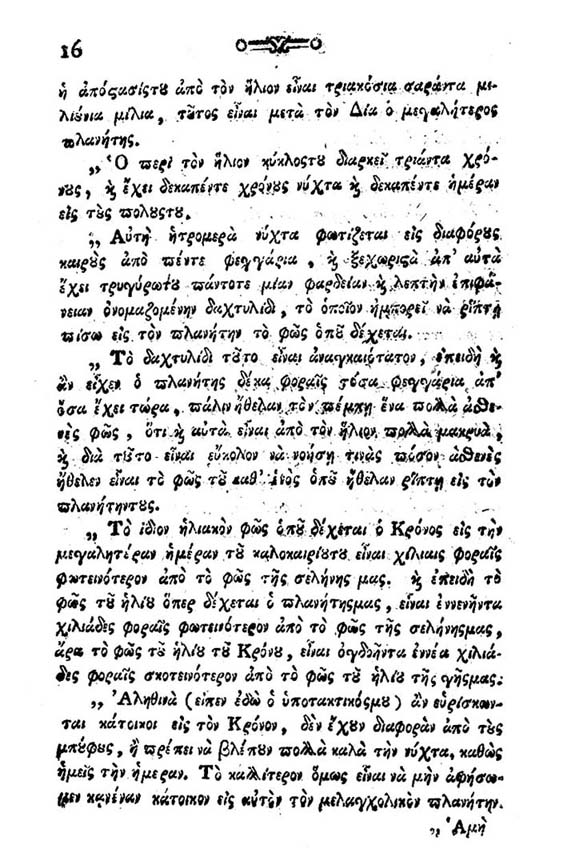 16
ἡ ἀπόϛασίςτȣ ἀπὸ τὸν ἥλιον εἶναι τριακόσια σαράντα μι-
λιȣ́νια μίλια, τȣ͂τος εἶναι μετὰ τὸν Δία ὁ μεγαλήτερος
πλανήτης.
„ Ὁ περὶ τὸν ἥλιον κύκλοςτȣ διαρκεῖ τριάντα χρό-
νȣς, ϗ ἔχει δεκαπέντε χρόνȣς νύχτα ϗ δεκαπέντε ἡμέραν
εἰς τȣ̀ς πολȣςτȣ.
„ Αὐτὴ ἡτρομερὰ νύχτα φωτίζεται εἰς διαφόρȣς
καιρȣ̀ς ἀπὸ πέντε φεγγάρια, ϗ ξεχωριϛὰ ἀπ' αὐτὰ
ἔχει τρυγύρωτȣ πάντοτε μίαν φαρδεῖαν ϗ λεπτὴν ἐπιφά-
νειαν ὀνομαζομένην δαχτυλίδι, τὸ ὁποῖον ἠμπορεῖ νὰ ῥίπτῃ
πίσω εἰς τὸν πλανήτην τὸ φῶς ὁπȣ͂ δέχεται.
„ Τὸ δαχτυλίδι τȣ͂το εἶναι ἀναγκαιότατον, ἐπειδὴ ϗ
ἂν εἶχεν ὁ πλανήτης δέκα φοραῖς τόσα φεγγάρια ἀπ'
ὅσα ἔχει τώρα, πάλιν ἤθελαν τὸν πέμπῃ ἕνα πολλὰ ἀσθε-
νὲς φῶς, ὅτι ϗ αὐτὰ εἶναι ἀπὸ τὸν ἥλιον πολλὰ μακρυὰ,
ϗ διὰ τȣ͂το εἶναι εὔκολον νὰ νοήσῃ τινὰς πόσον ἀσθενὲς
ἤθελεν εἶναι τὸ φῶς τȣ͂ καθ' ἑνὸς ὁπȣ͂ ἤθελαν ῥίπτῃ εἰς τὸν
πλανήτηντȣς.
„ Τὸ ἴδιον ἡλιακὸν φῶς ὁπȣ͂ δέχεται ὁ Κρόνος εἰς τὴν
μεγαλητέραν ἡμέραν τȣ͂ καλοκαιριȣ͂τȣ εἶναι χίλιαις φοραῖς
φωτεινότερον ἀπὸ τὸ φῶς τῆς σελήνης μας. ϗ ἐπειδὴ τὸ
φῶς τȣ͂ ἡλίȣ ὅπερ δέχεται ὁ πλανήτηςμας, εἶναι ἐννενῆντα
χιλιάδες φοραῖς φωτεινότερον ἀπὸ τὸ φῶς τῆς σελήνηςμας,
ἄρα τὸ φῶς τȣ͂ ἡλίȣ τȣ͂ Κρόνȣ, εἶναι ὀγδοῆντα ἐννέα χιλιά-
δες φοραῖς σκοτεινότερον ἀπὸ τὸ φῶς τȣ͂ ἡλίȣ τῆς γῆςμας.
„ Ἀληθινὰ (εἶπεν ἐδὼ ὁ ὑποτακτικόςμȣ) ἂν εὑρίσκων-
ται κάτοικοι εἰς τὸν Κρόνον, δὲν ἔχȣν διαφορὰν ἀπὸ τȣ̀ς
μπύφȣς, ἢ πρέπει νὰ βλέπȣν πολλὰ καλὰ τὴν νύχτα, καθὼς
ἡμεῖς τὴν ἡμέραν. Τὸ καλλίτερον ὅμως εἶναι νὰ μὴν ἀφήσω-
μεν κανέναν κάτοικον εἰς αὐτὸν τὸν μελαγχολικὸν πλανήτην.
„ Ἀμὴ